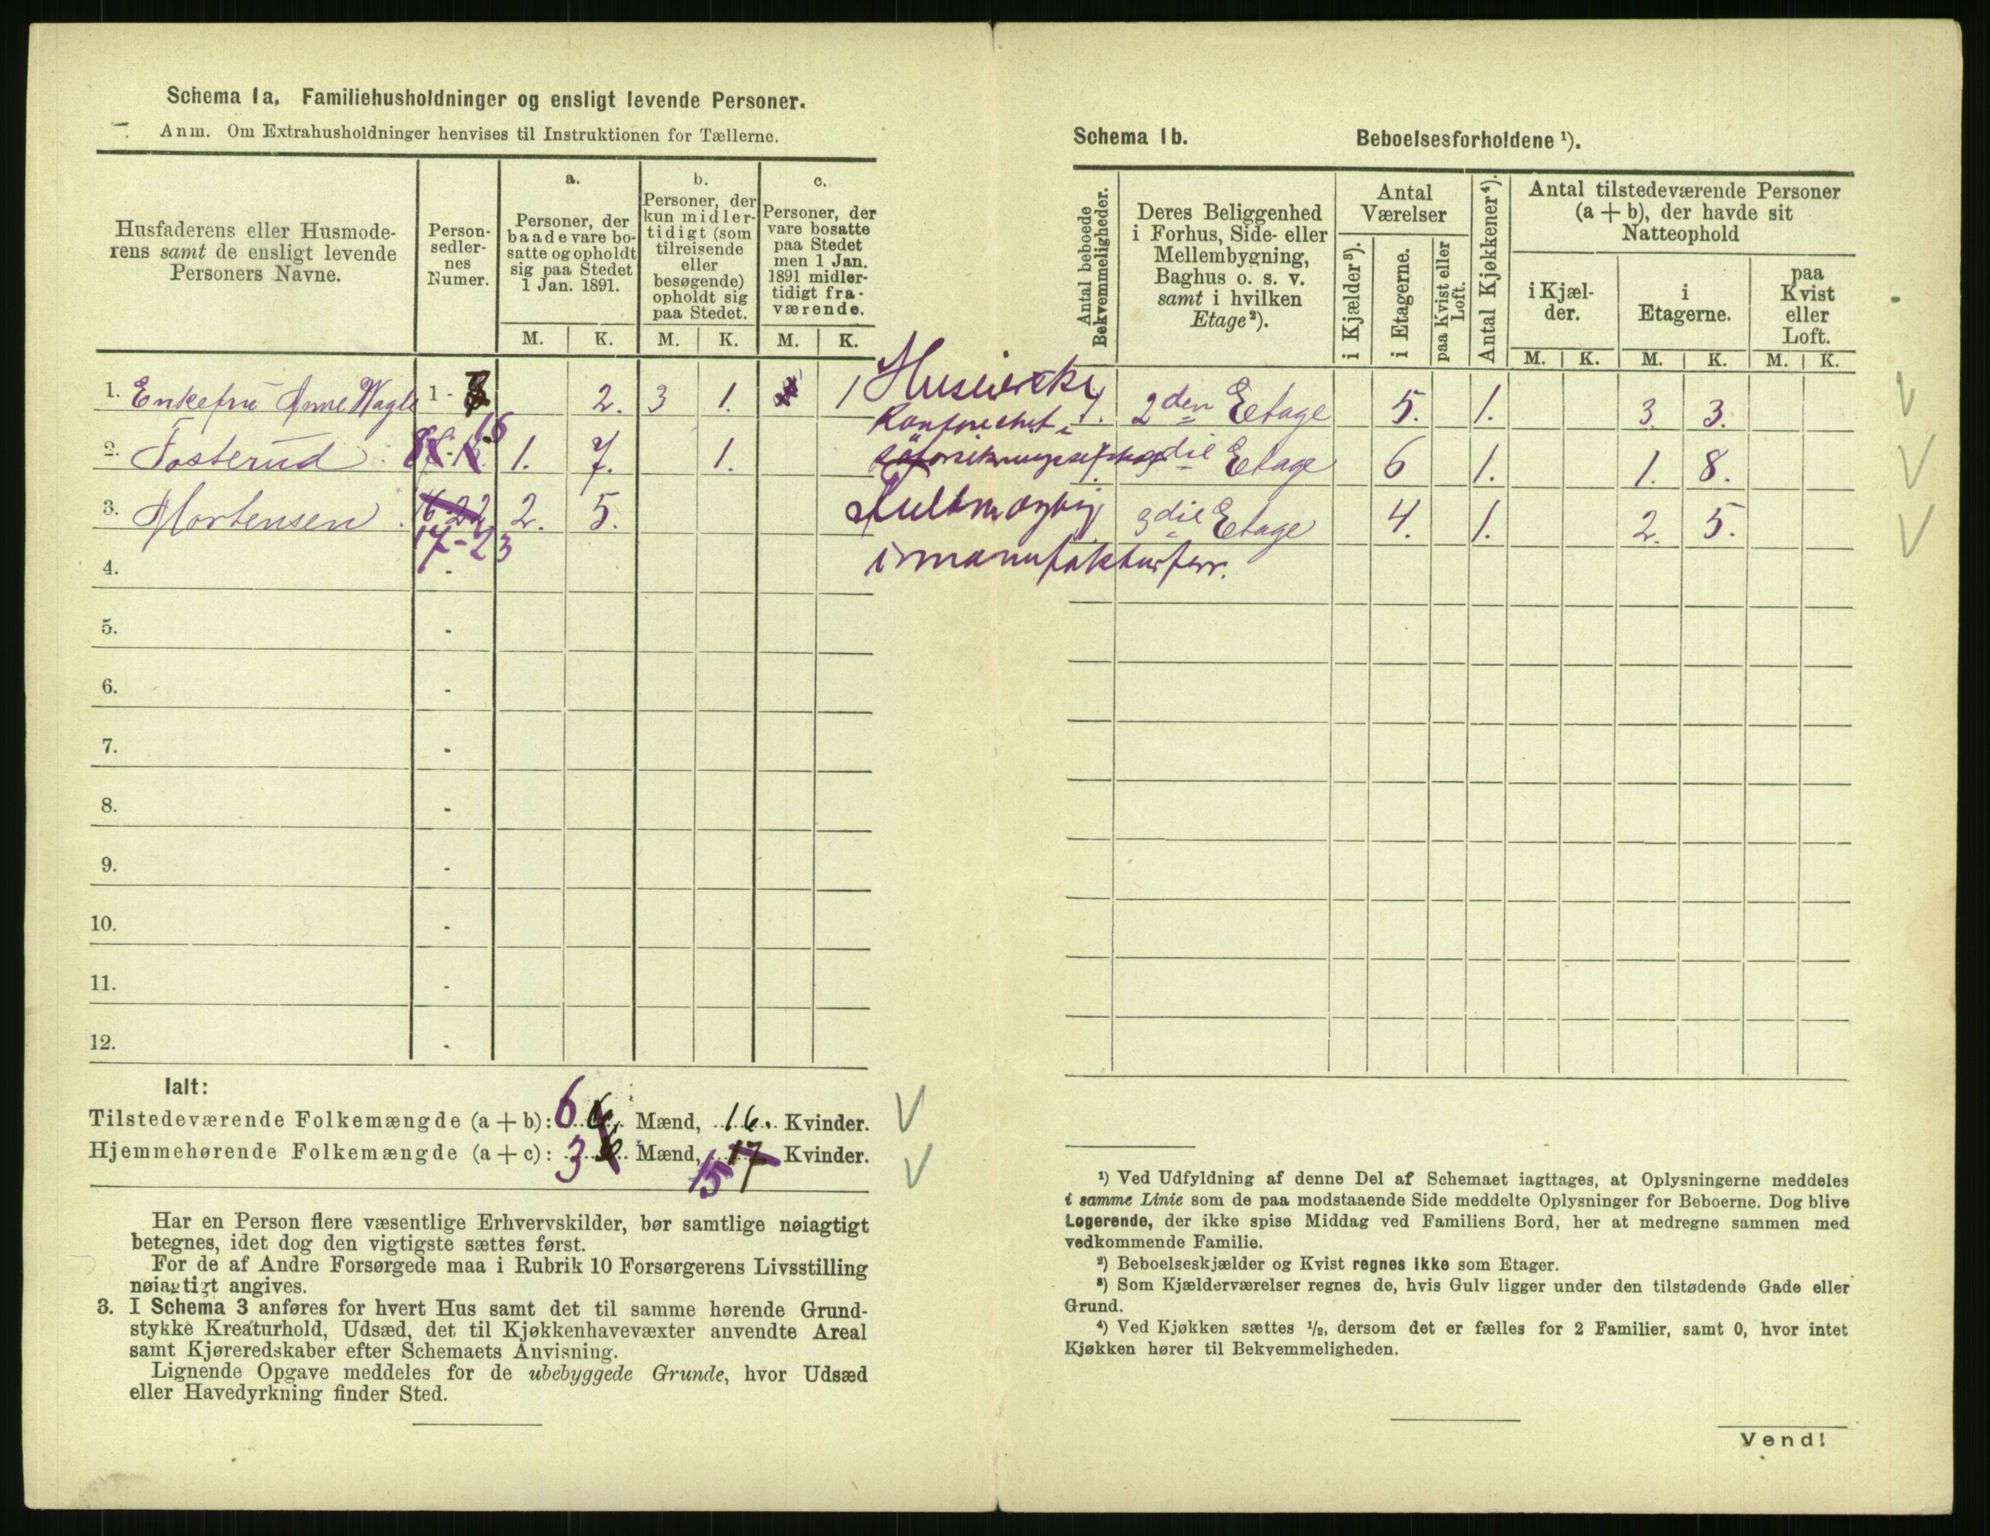 Schema 1a. Familiehusholdninger og ensligt levende Personer.
Anm. Om Extrahusholdninger henvises til Instruktionen for Tællerne.
Husfaderens eller Husmode-
rens samt de ensligt levende
Personers Navne.
Person-
sedler-
nes
Numer.
a.
Personer, der
baade vare bo-
satte og opholdt
sig paa Stedet
1 Jan. 1891.
b.
Personer, der
kun midler-
tidigt (som
tilreisende
eller
besøgende)
opholdt sig
paa Stedet.
c.
Personer, der
vare bosatte
paa Stedet
men 1 Jan.
1891 midler-
tidigt fra-
værende.
M. K. M. K. M. K.
1. Enkefru Anne Wagle 1 - 2. 3 1. 1
2. Fosterud 16 1. 7. 1.
3. Mortensen. 16-22 2. 5.
17-23
4. -
5. -
6. -
7. -
8. -
9. -
10. -
11. -
12. -
Ialt:
Tilstedeværende Folkemængde (a + b): 6 6. Mænd, 16. Kvinder.
Hjemmehørende Folkemængde (a + c): 3 Mænd, 15 17 Kvinder.
Har en Person flere væsentlige Erhvervskilder, bør samtlige nøiagtigt
betegnes, idet dog den vigtigste sættes først.
For de af Andre Forsørgede maa i Rubrik 10 Forsørgerens Livsstilling
nøiagtigt angives.
3. I Schema 3 anføres for hvert Hus samt det til samme hørende Grund-
stykke Kreaturhold, Udsæd, det til Kjøkkenhavevæxter anvendte Areal
samt Kjøreredskaber efter Schemaets Anvisning.
Lignende Opgave meddeles for de ubebyggede Grunde, hvor Udsæd
eller Havedyrkning finder Sted.
Schema 1b. Beboelsesforholdene ¹).
Antal beboede
Bekvemmeligheder.
Deres Beliggenhed
i Forhus, Side- eller
Mellembygning,
Baghus o. s. v.
samt i hvilken
Etage²).
Antal
Værelser
i Kjælder³).
i Etagerne.
paa Kvist eller
Loft.
Antal Kjøkkener⁴).
Antal tilstedeværende Personer
(a + b), der havde sit
Natteophold
i Kjæl-
der.
i
Etagerne.
paa
Kvist
eller
Loft.
M. K. M. K. M. K.
1. 2den Etage 5. 1. 3. 3.
3die Etage 6 1. 1. 8.
3die Etage 4. 1. 2. 5.
i manufakturforr.
¹) Ved Udfyldning af denne Del af Schemaet iagttages, at Oplysningerne meddeles
i samme Linie som de paa modstaaende Side meddelte Oplysninger for Beboerne. Dog blive
Logerende, der ikke spise Middag ved Familiens Bord, her at medregne sammen med
vedkommende Familie.
²) Beboelseskjælder og Kvist regnes ikke som Etager.
³) Som Kjælderværelser regnes de, hvis Gulv ligger under den tilstødende Gade eller
Grund.
⁴) Ved Kjøkken sættes ½, dersom det er fælles for 2 Familier, samt 0, hvor intet
Kjøkken hører til Bekvemmeligheden.
Vend!